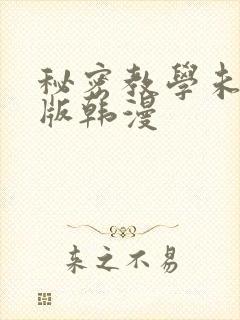 秘密教學未
版韩漫
来之不易